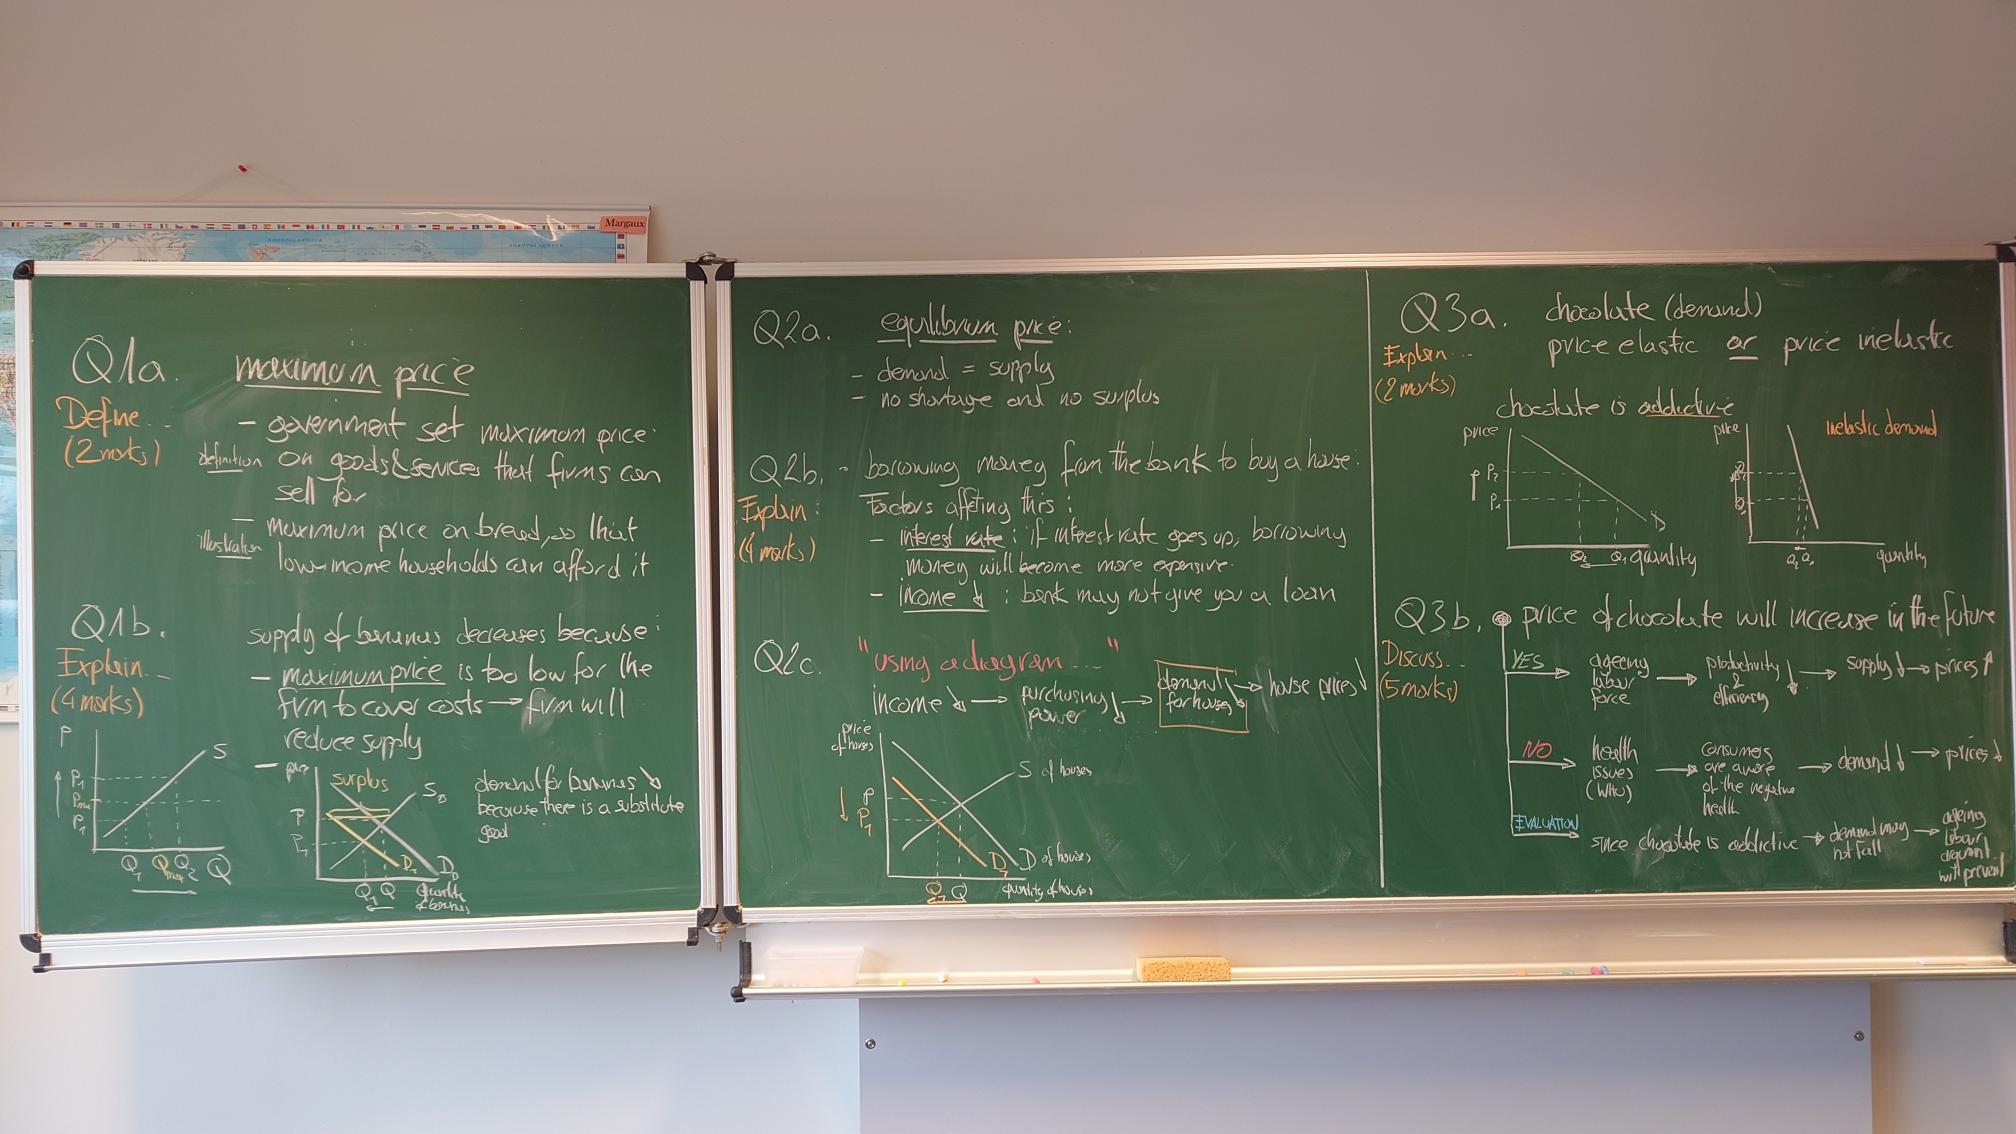 Margaux
Q1a.
maximum price
Define...
(2 marks)
- government set maximum price
definition
on goods & services that firms can
sell for
- maximum price on bread, so that
illustration
low-income households can afford it
Q1b.
Explain...
(4 marks)
supply of bananas decreases because:
- maximum price is too low for the
firm to cover costs → firm will
reduce supply
P
S
P1
Pmax
P1
Q1
Qmax
Q2
Q
-
price
surplus
SB
P
P1
D1
DB
Q1
Q
quantity
of bananas
demand for bananas ↘
because there is a substitute
good
Q2a.
equilibrium price:
- demand = supply
- no shortage and no surplus
Q2b.
Explain:
(4 marks)
- borrowing money from the bank to buy a house:
Factors affecting this:
- interest rate: if interest rate goes up, borrowing
money will become more expensive.
- income ↓ : bank may not give you a loan
Q2c.
"using a diagram ...."
income ↘ → purchasing power ↓ → demand for houses ↘ → house prices ↓
price
of houses
S of houses
P
P1
D1
D of houses
Q1
Q
quantity of houses
Q3a.
Explain...
(2 marks)
chocolate (demand)
price elastic or price inelastic
chocolate is addictive
price
P2
P1
D
Q2
Q1
quantity
price
inelastic demand
P2
P1
Q2
Q1
quantity
Q3b.
Discuss...
(5 marks)
price of chocolate will increase in the future
YES
ageeing
labour
force
→
productivity ↓
&
efficiency
→ supply ↓ → prices ↑
NO
health
issues
(WHO)
→
consumers
are aware
of the negative
health
→ demand ↓ → prices ↓
EVALUATION
since chocolate is addictive → demand may
not fall
→
ageing
labour
argument
will prevail